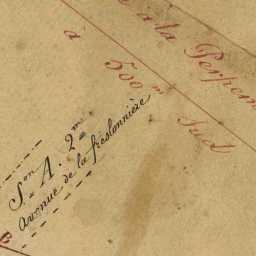 à la Perpen
à 500 m Sud
S.on A. 2.me
avenue de la freslonnière
B